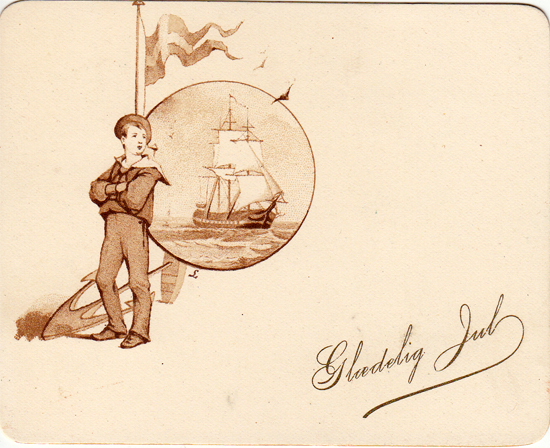 L
Glædelig Jul